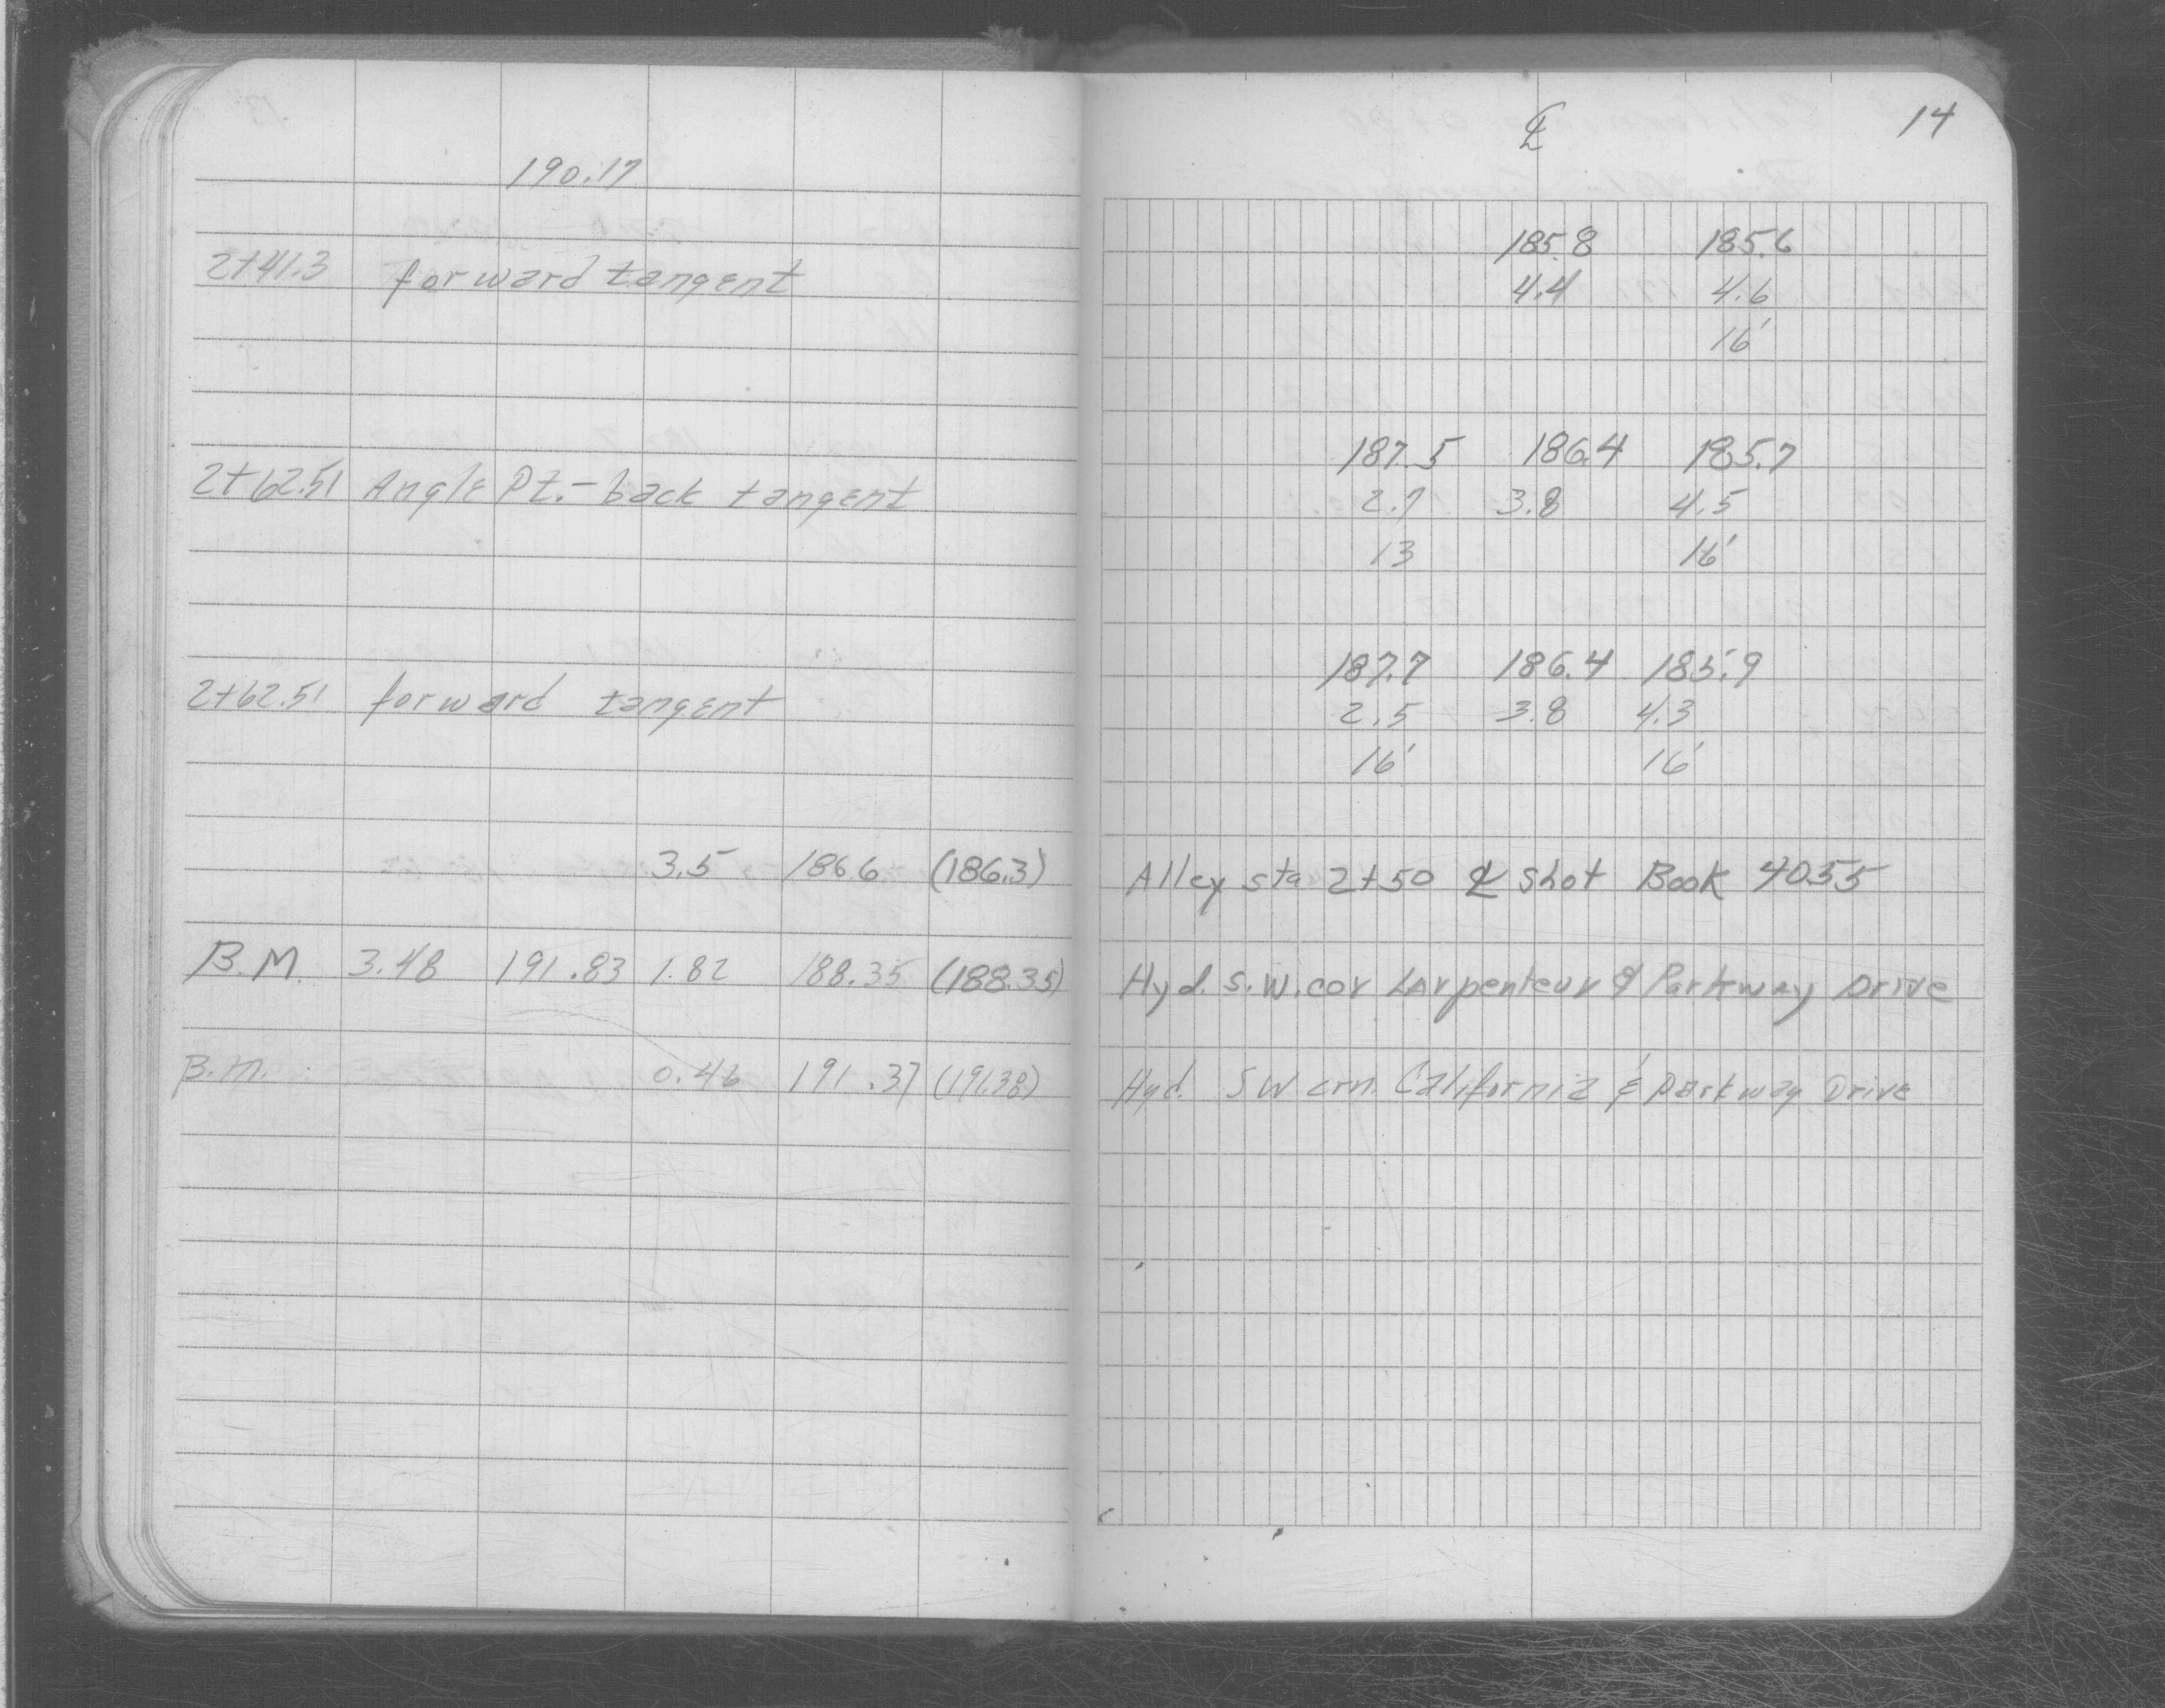 190.17
2+41.3 forward tangent
2+62.51 Angle Pt.- back tangent
2+62.51 forward tangent
3.5 186.6 (186.3)
B.M. 3.48 191.83 1.82 188.35 (188.35)
B.M. 0.46 191.37 (191.38)
℄ 14
185.8 185.6
4.4 4.6
16'
187.5 186.4 185.7
2.7 3.8 4.5
13 16'
187.7 186.4 185.9
2.5 3.8 4.3
16' 16'
Alley sta 2+50 ℄ shot Book 4055
Hyd. S.W. cor Larpenteur & Parkway Drive
Hyd. SW crn. California & Parkway Drive